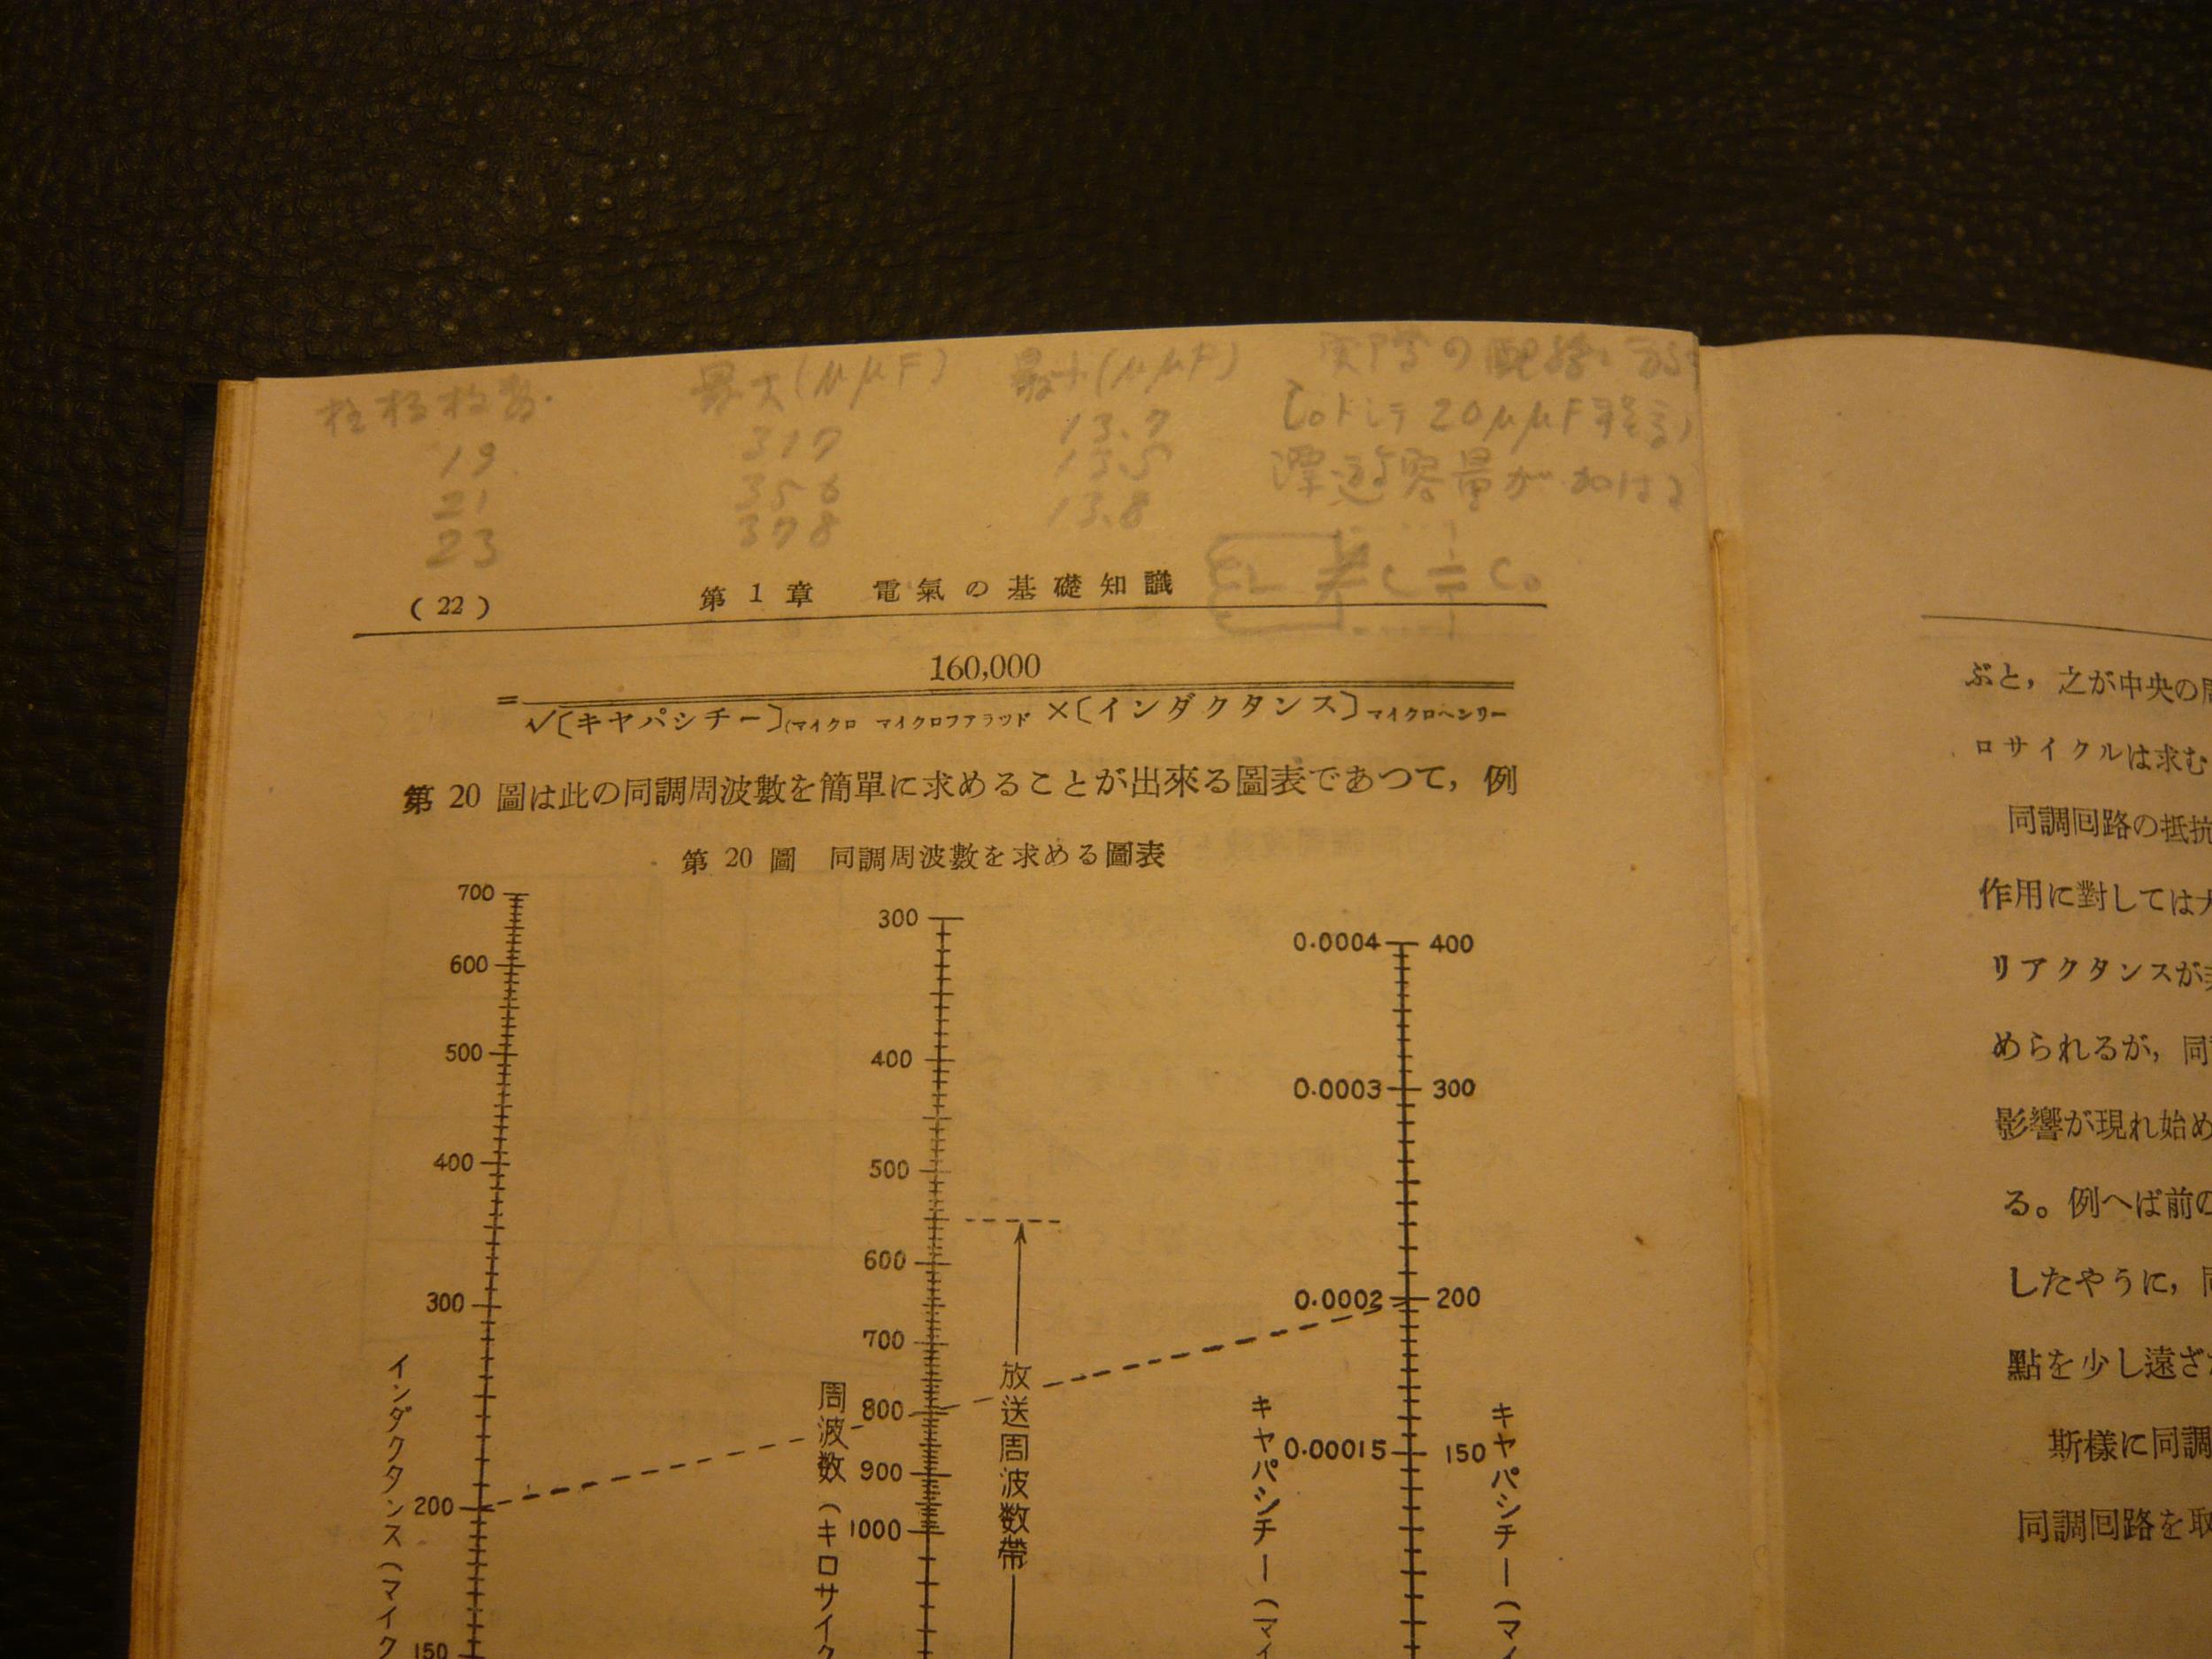 枚数.
最大(μμF)
最小(μμF)
実際の配線に於
Coトシテ 20μμF程
遊容量が加は
19 317 13.7
21 356 15.5
23 378 13.8
L C C₀
( 22 ) 第 1 章 電氣の基礎知識
160,000
=
√〔キヤパシチー〕(マイクロ マイクロフアラツド ×〔インダクタンス〕マイクロヘンリー
第 20 圖は此の同調周波數を簡單に求めることが出來る圖表であつて, 例
第 20 圖 同調周波數を求める圖表
700
600
500
400
300
200
150
インダクタンス (マイク
300
400
500
600
700
800
900
1000
周波数 (キロサイク
放送周波数帶
0.0004 400
0.0003 300
0.0002 200
0.00015 150
キヤパシチー (マイ
キヤパシチー (マイ
ぶと, 之が中央の
ロサイクルは求む
同調回路の抵抗
作用に對しては大
リアクタンスが
められるが, 同
影響が現れ始め
る。例へば前の
したやうに, 同
點を少し遠ざ
斯樣に同調
同調回路を取